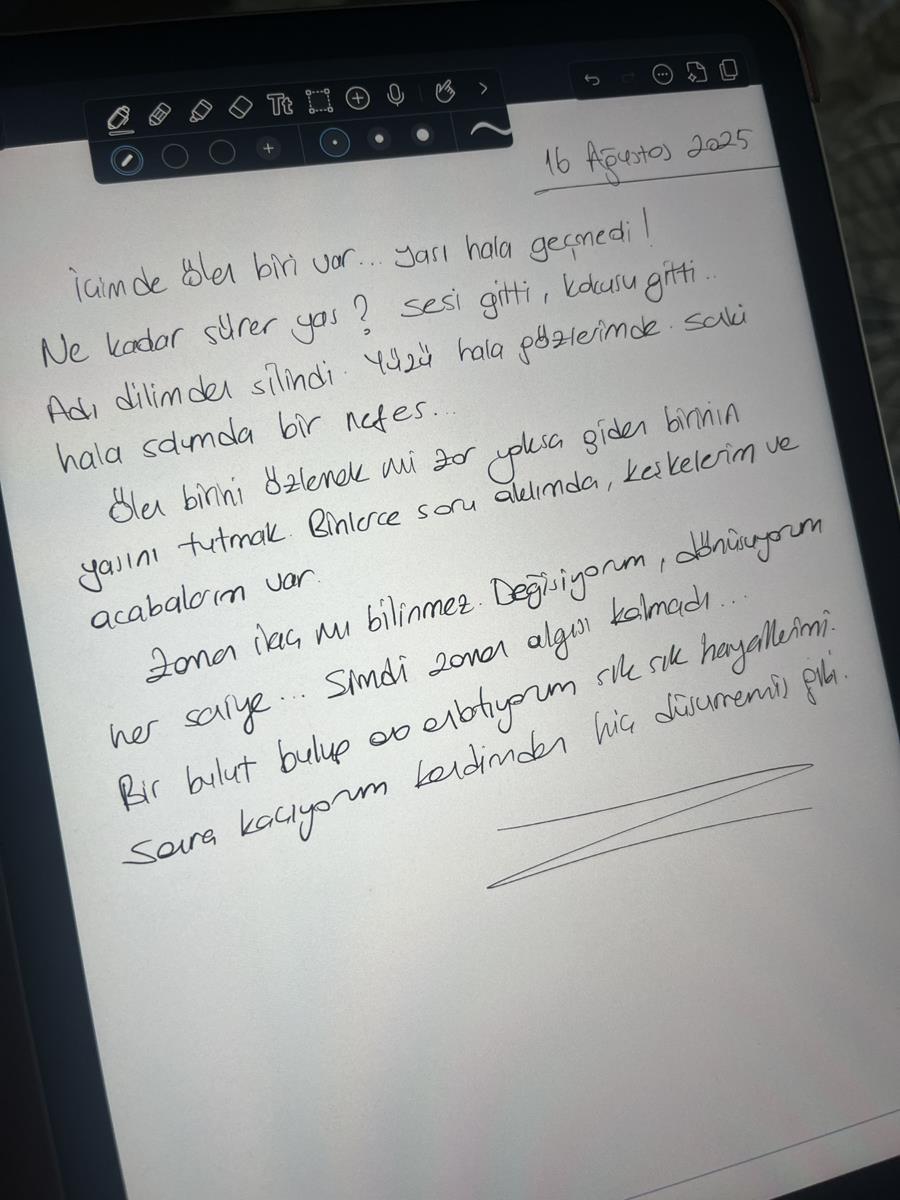 Tt
16 Ağustos 2025
İçimde ölen biri var... yası hala geçmedi!
Ne kadar sürer yas? Sesi gitti, kokusu gitti..
Adı dilimden silindi. Yüzü hala gözlerimde. Sanki
hala solumda bir nefes...
Ölen birini özlemek mi zor yoksa giden birinin
yasını tutmak. Binlerce soru aklımda, keşkelerim ve
acabalarım var.
Zaman ilaç mı bilinmez. Değişiyorum, dönüşüyorum
her saniye... Şimdi zaman algısı kalmadı...
Bir bulut bulup ona anlatıyorum sık sık hayallerimi.
Sonra kaçıyorum kendimden hiç düşünmemiş gibi.